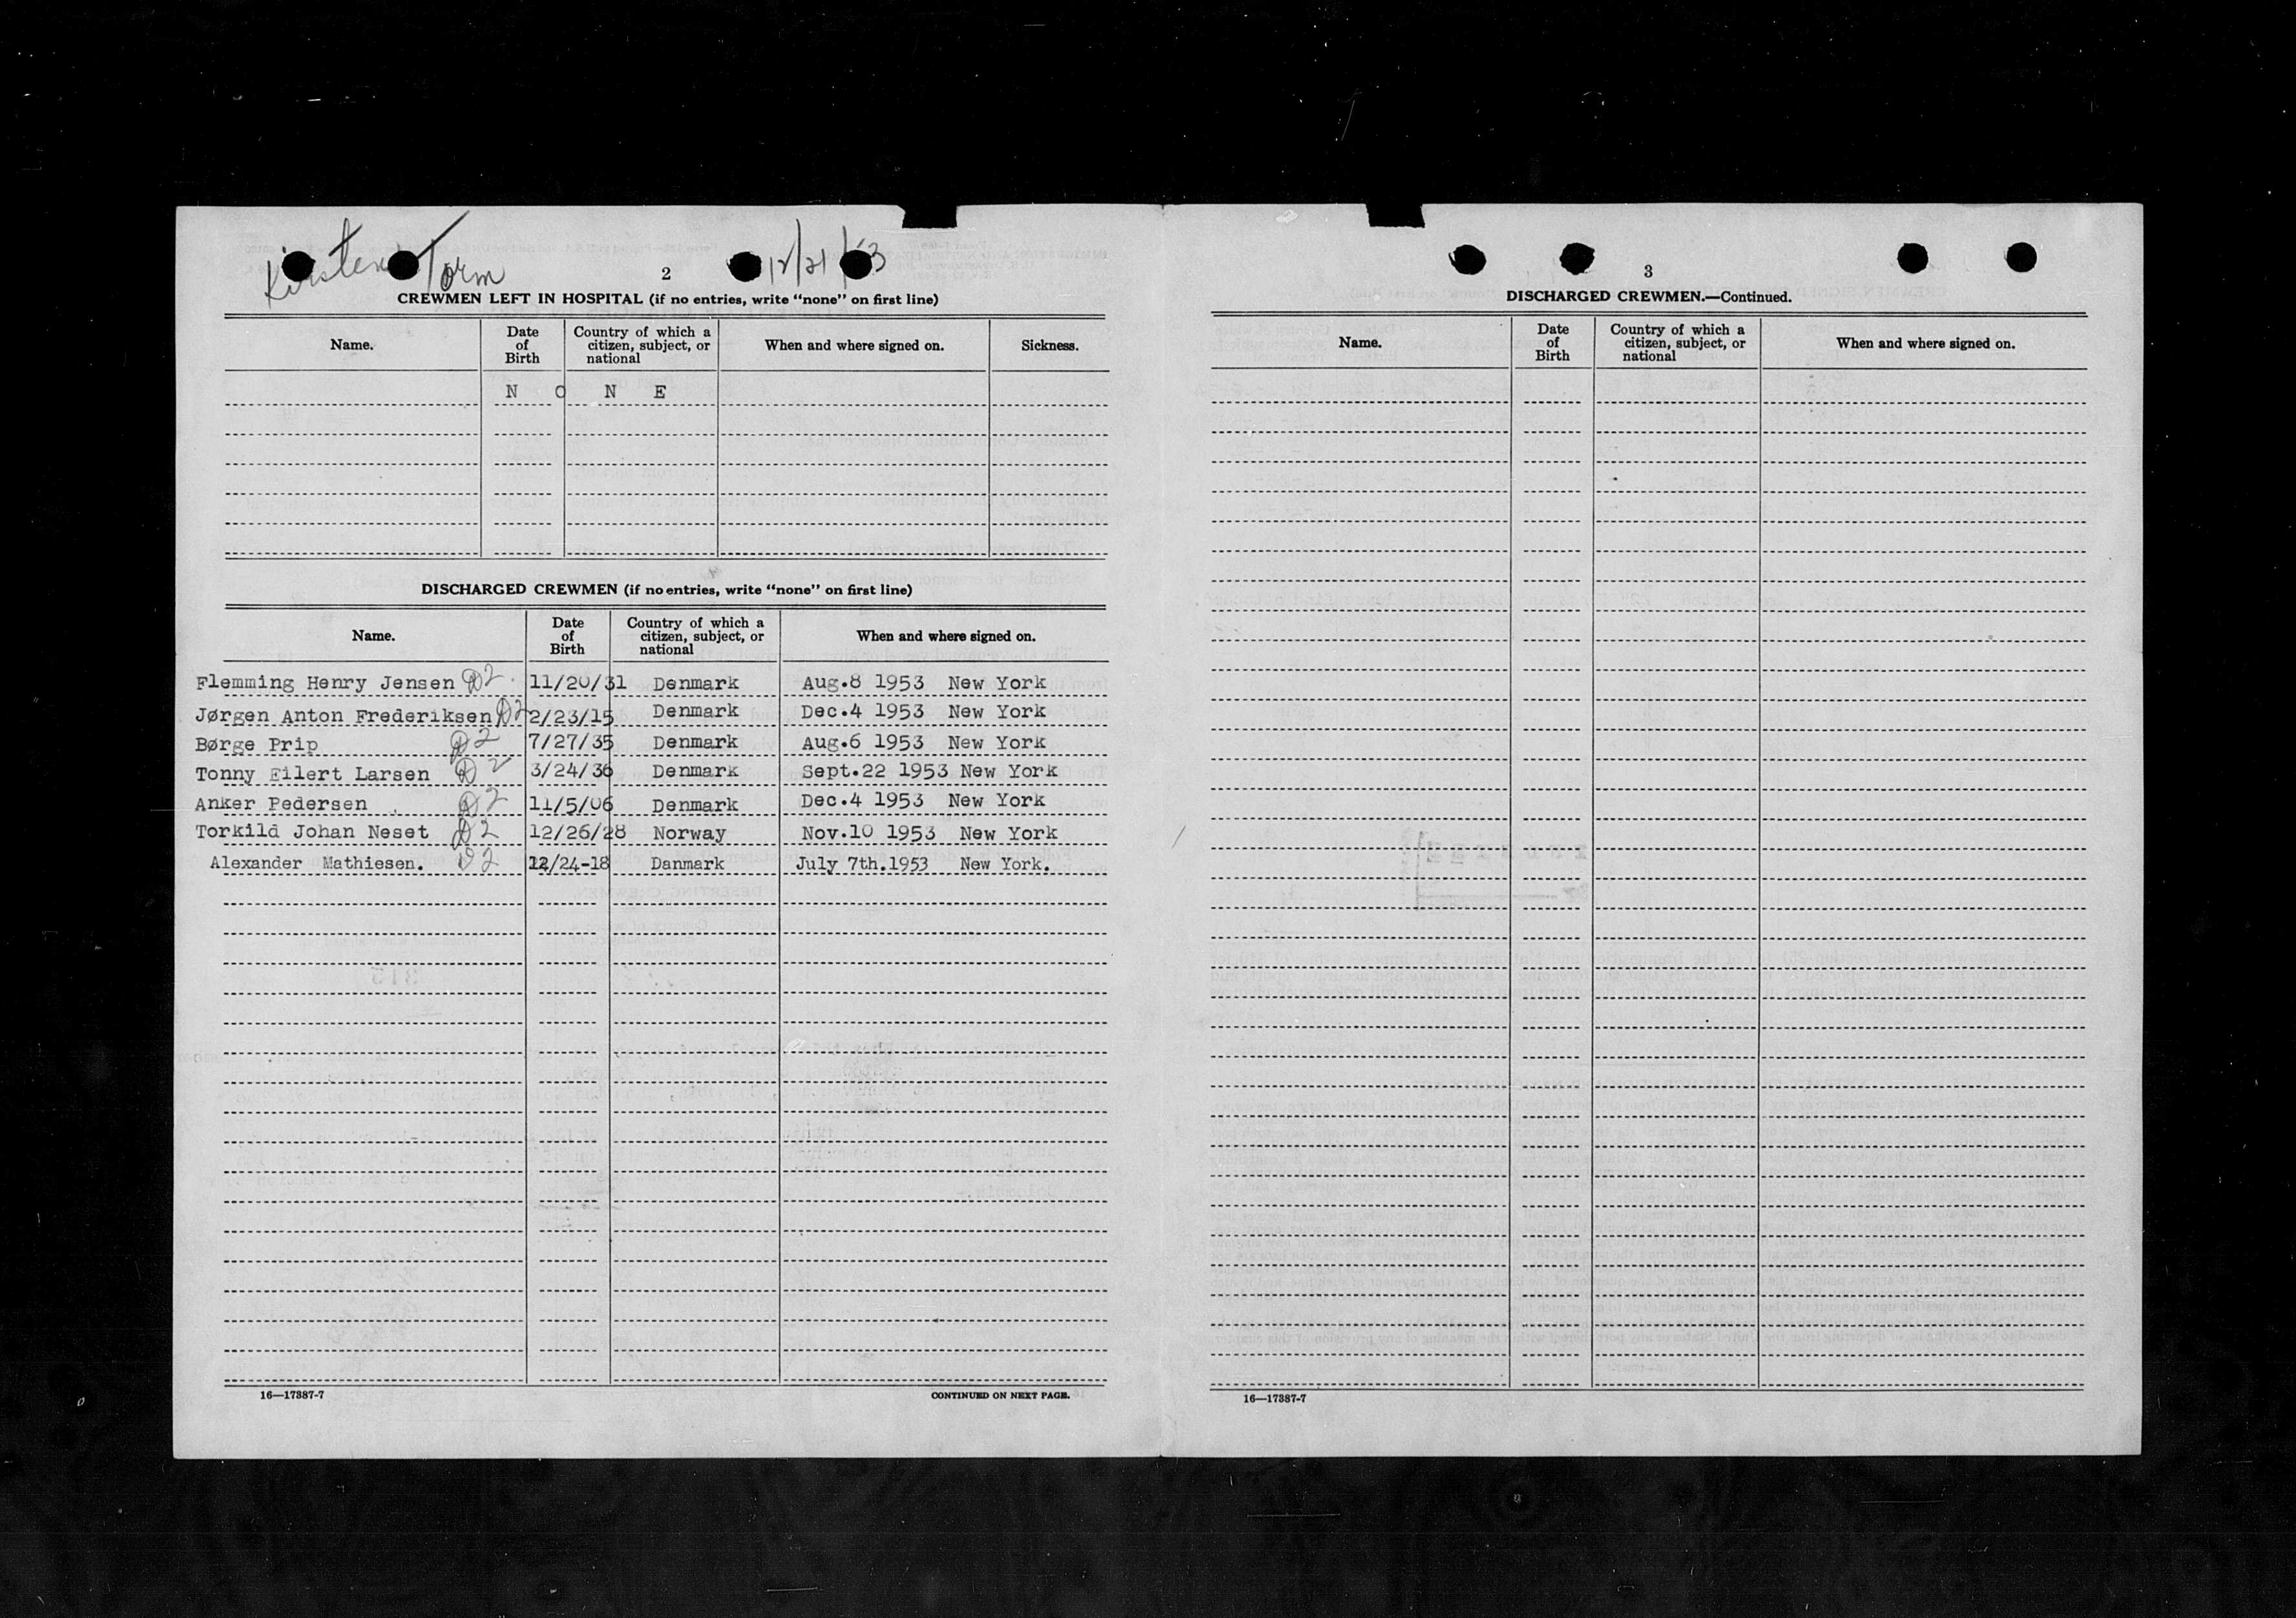 Kirsten Torm 2 12/21/53
CREWMEN LEFT IN HOSPITAL (if no entries, write "none" on first line)
Name. Date of Birth Country of which a citizen, subject, or national When and where signed on. Sickness.
N O N E
DISCHARGED CREWMEN (if no entries, write "none" on first line)
Name. Date of Birth Country of which a citizen, subject, or national When and where signed on.
Flemming Henry Jensen D2 11/20/31 Denmark Aug.8 1953 New York
Jørgen Anton Frederiksen D2 2/23/15 Denmark Dec.4 1953 New York
Børge Prip D2 7/27/35 Denmark Aug.6 1953 New York
Tonny Eilert Larsen D2 3/24/36 Denmark Sept.22 1953 New York
Anker Pedersen D2 11/5/06 Denmark Dec.4 1953 New York
Torkild Johan Neset D2 12/26/28 Norway Nov.10 1953 New York
Alexander Mathiesen. D2 12/24-18 Danmark July 7th.1953 New York.
16—17387-7 CONTINUED ON NEXT PAGE.
3
DISCHARGED CREWMEN.—Continued.
Name. Date of Birth Country of which a citizen, subject, or national When and where signed on.
16—17387-7